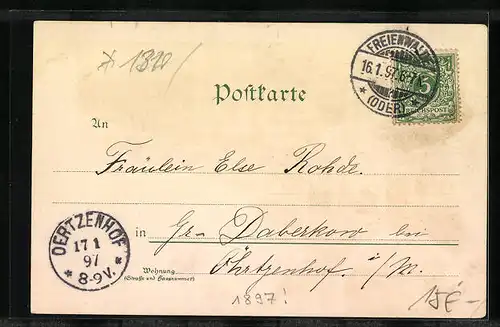 * 1310/
FREIENWALDE
16.1.97. 6-7N.
* (ODER) *
5
REICHSPOST
Postkarte
An
Fräulein Else Rohde.
in Gr. Daberkow bei
OERTZENHOF
17 1
97
* 8-9V. *
Wohnung
(Straße und Hausnummer)
Öhrtzenhof. i/M.
1897!
15€-